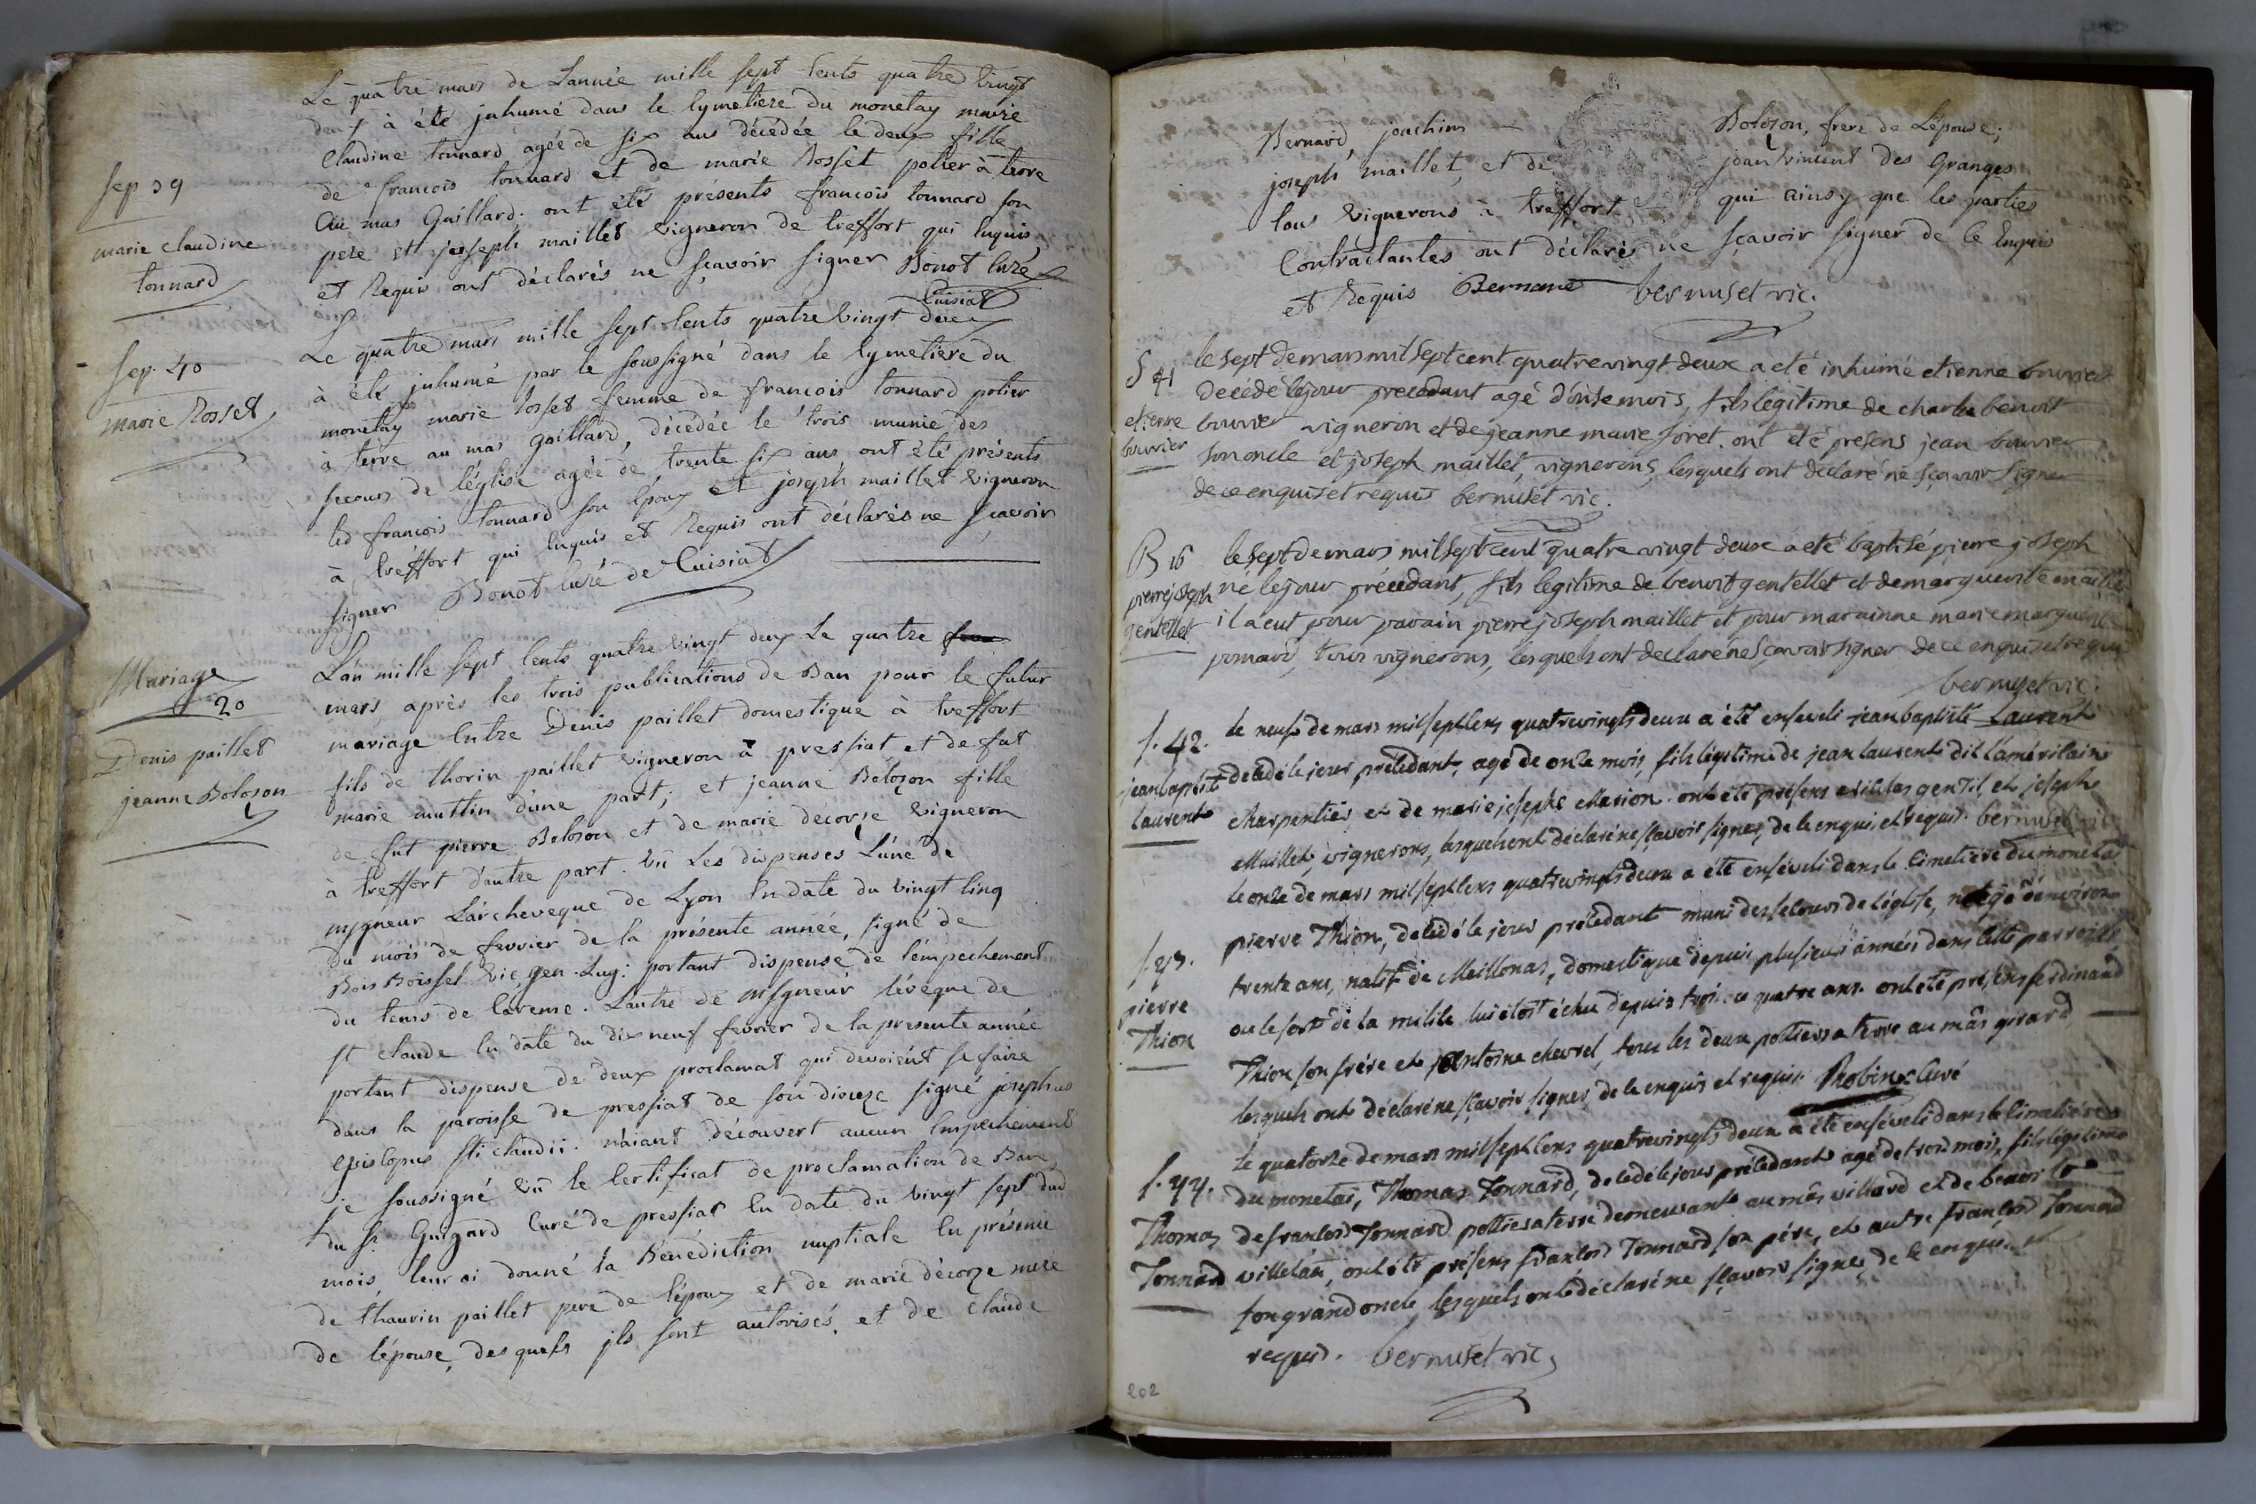 Le quatre mars de L'année mille sept Cents quatre Vingt
deux à été jnhumé dans le Cymetiere du monetay marie
Claudine tonnard agée de six ans décédée le deux fille
de francois tonnard et de marie Rosset potier à terre
Au mas Gaillard. ont été présents francois tonnard son
pere et joseph maillet vigneron de treffort qui Enquis
et Requis ont déclarés ne sçavoir signer Bonot Curé
Cuisiat
Sep 39
marie claudine
tonnard
Le quatre mars mille sept Cents quatre Vingt deux
à été jnhumé par le soussigné dans le Cymetiere du
monetay marie rosset femme de francois tonnard potier
à terre au mas gaillard, décédée le trois munie des
secours de l'église agée de trente six ans ont été présents
led francois tonnard son Epoux et joseph maillet vigneron
à treffort qui Enquis et Requis ont déclarés ne sçavoir
signer Bonot Curé de Cuisiat
Sep. 40
marie Rosset
L'an mille sept Cents quatre Vingt deux Le quatre
mars après les trois publications de Ban pour le futur
mariage Entre Denis paillet domestique à treffort
fils de thorin paillet vigneron à pressiat et de fut
marie muttin d'une part; et jeanne Bolozon fille
de fut pierre Bolozon et de marie decorze vigneron
à treffort d'autre part. Vû Les dispenses L'une de
mgneur L'archeveque de Lyon En date du Vingt Cinq
du mois de fevrier de la présente année, signé de
Bois Boissel Vic. gen. Lug: portant dispense de l'empechement
du tems de Careme. L'autre de msgneur l'évêque de
st claude En date du dix neuf fevrier de la presente année
portant dispense de deux proclamat qui devoient se faire
dans la paroisse de pressiat de son diocese signé josephus
Episcopus sti claudii. n'aiant découvert aucun Empechement
je soussigné Vû le Certificat de proclamation de Ban
du Sr. Guigard Curé de pressiat En date du Vingt sept dud
mois, leur ai donné la Bénédiction nuptiale En présence
de thaurin paillet pere de l'époux et de marie décorze mere
de l'épouse, desquels jls sont autorisés. et de Claude
Mariage
20
Denis paillet
jeanne Bolozon
Bernard, joachim Bolozon, frere de L'épouse;
joseph maillet, et de jean vincent des Granges
tous vignerons à treffort qui ainsy que les parties
Contractantes ont déclarés ne sçavoir signer de ce Enquis
et Requis Bernard bernuset vic.
S 41
etienne
bouvier
le sept de mars mil sept cent quatre vingt deux a eté inhumé etienne bouvier
decédé le jour precedant agé d'onse mois, fils legitime de charles benoit
bouvier vigneron et de jeanne marie foret. ont été presens jean bouvier
son oncle et joseph maillet, vignerons, lesquels ont declaré ne sçavoir signer
de ce enquis et requis bernuset vic.
B 16
pierre joseph
gentellet
le sept de mars mil sept cent quatre vingt deux a eté baptisé pierre joseph
né le jour précedant, fils legitime de benoit gentellet et de marguerite maillet
il a eut pour parain pierre joseph maillet et pour marainne marie marguerite
ponard, tous vignerons, lesquels ont declaré ne sçavoir signer de ce enquis et requis
bernuset vic.
s. 42.
jean baptist
Laurent
le neuf de mars mil sept cens quatre vingts deux a été enseveli jean baptiste Laurent
décédé le jour précédant, agé de onze mois, fils légitime de jean laurent dit l'américain
charpentier et de marie josephe Marion. ont été présens gentil et joseph
Maillet, vignerons, lesquels ont déclaré ne sçavoir signer de ce enquis et requis. bernuset vic
s. 43.
pierre
Thion
le onze de mars mil sept cens quatre vingts deux a été enséveli dans le Cimetiere du monetai
pierre Thion, décédé le jour précédant muni des secours de l'église, agé d'environ
trente ans, natif de Meillonas, domestique depuis plusieurs années dans cette parroisse
ou le sort de la milice lui étoit échu depuis trois ou quatre ans. ont été présens ferdinand
Thion son frére et antoine chevrel, tous les deux pottiers a terre au mâs girard
lesquels ont déclaré ne sçavoir signer de ce enquis et requis. Robin Curé
s. 44.
Thomas
Tonnard
le quatorze de mars mil sept cens quatre vingts deux a été enséveli dans le Cimetiére
du monetai, Thomas Tonnard, décédé le jour précédant agé de trois mois, fils légitime
de francois Tonnard pottier a terre demeurant au mâs villard et de benoite
villelan, ont été présens francois Tonnard son pére, et autre francois Tonnard
son grand oncle lesquels ont déclaré ne sçavoir signer de ce enquis et
requis. bernuset vic
202